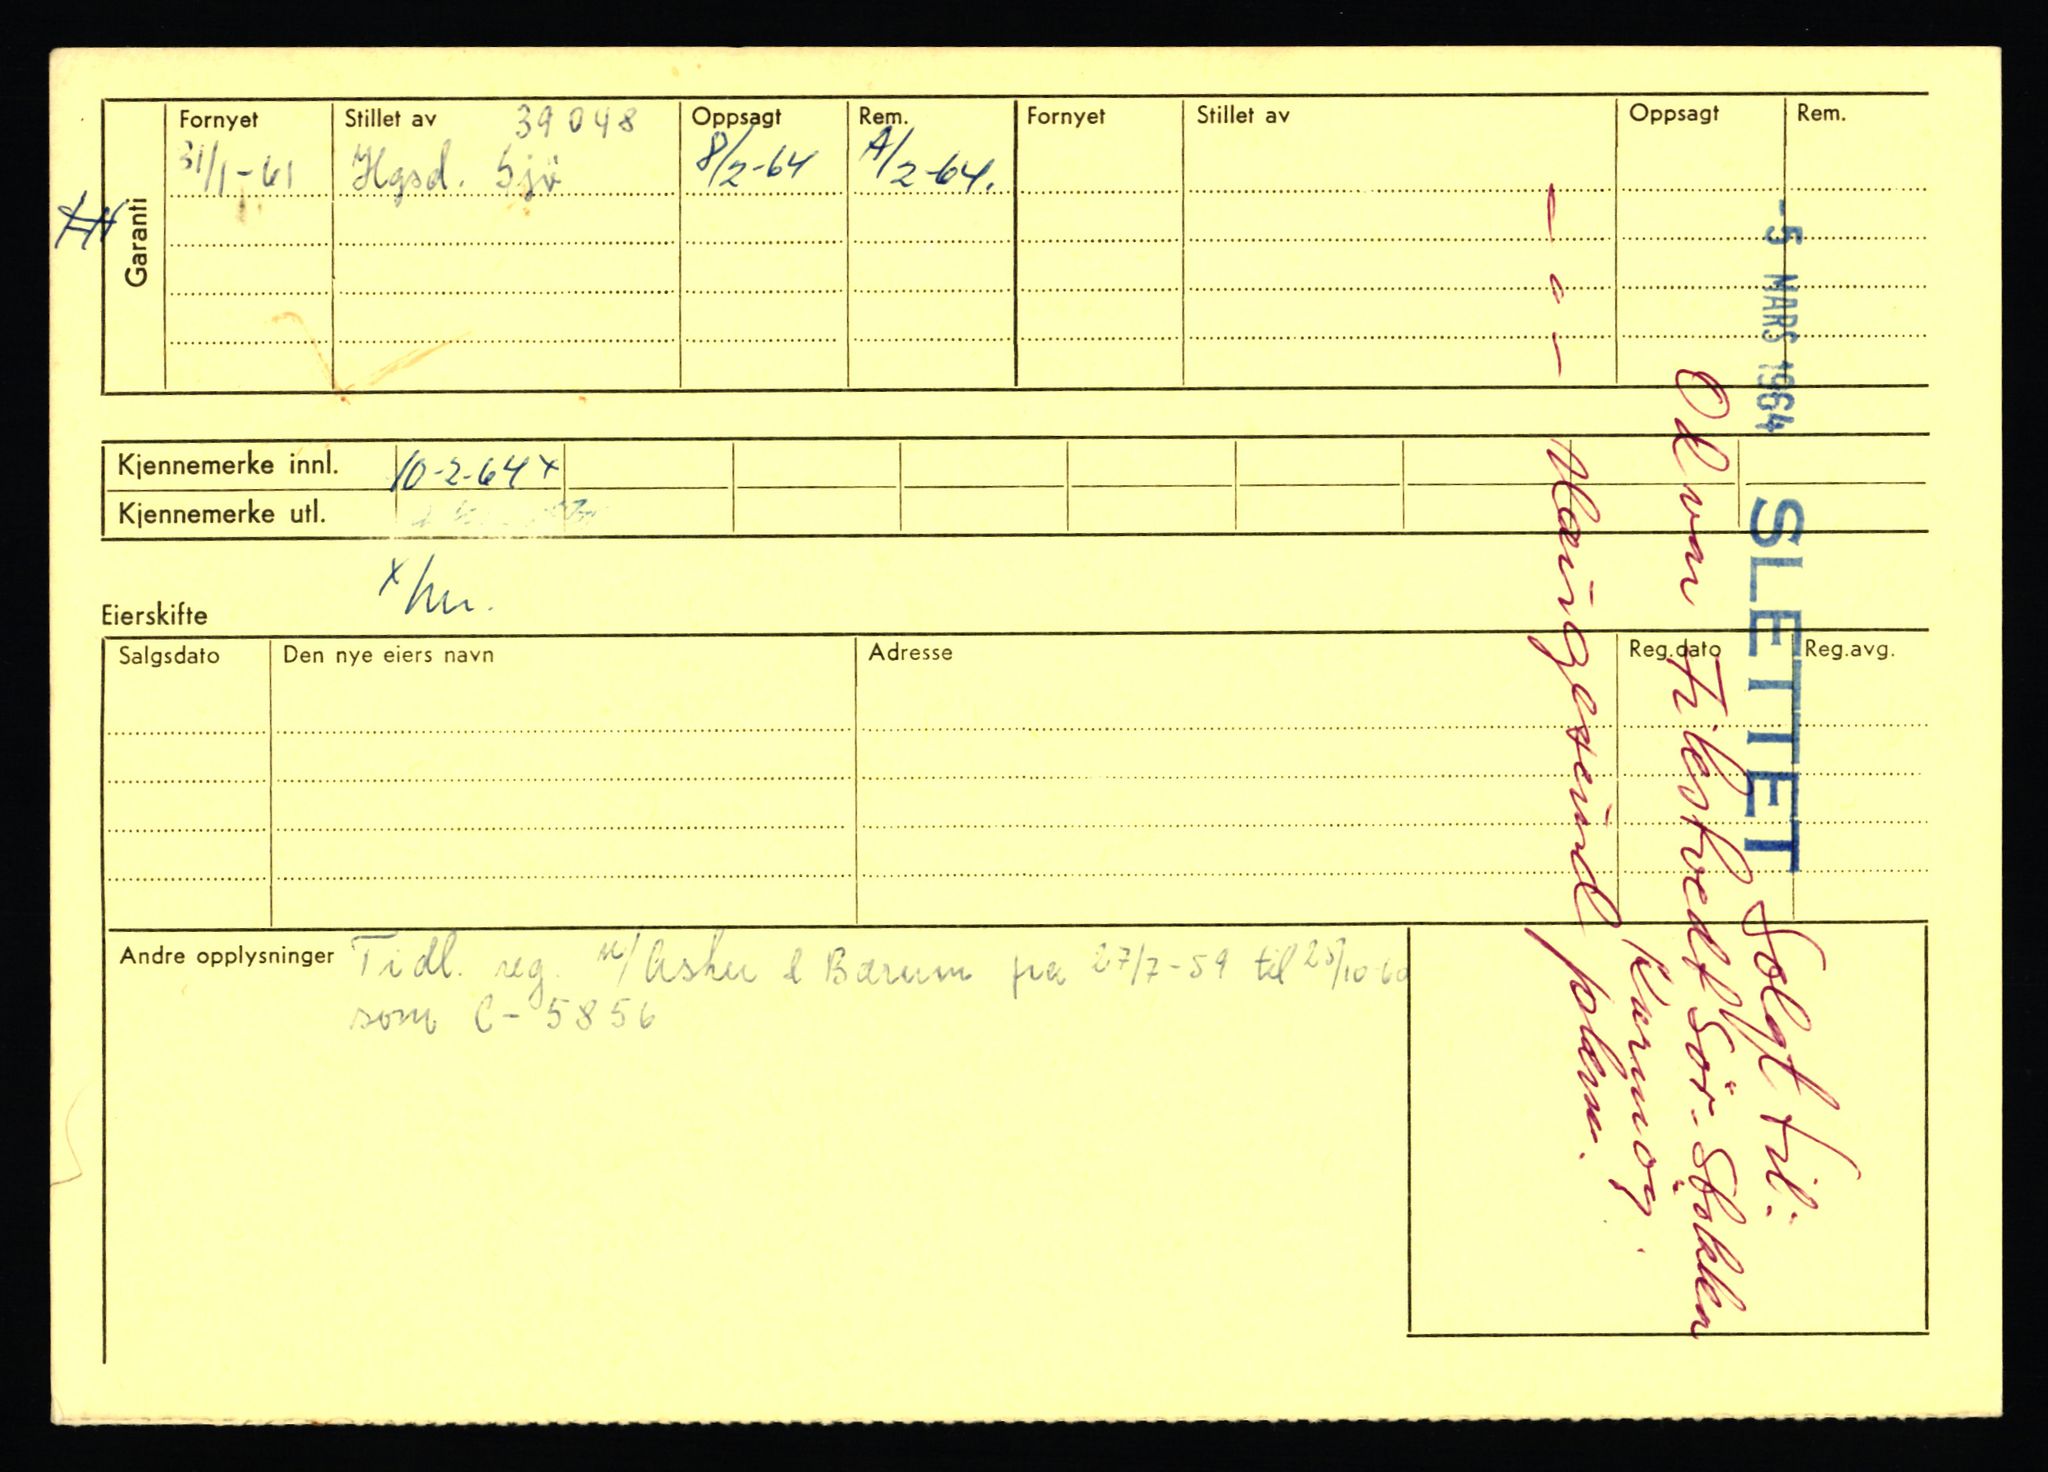 Garanti
Fornyet Stillet av 39048 Oppsagt Rem. Fornyet Stillet av Oppsagt Rem.
31/1-61 Hgsd. Sjö 8/2-64 A/2-64.
Kjennemerke innl. 10-2-64 x
Kjennemerke utl.
x
Eierskifte
Salgsdato Den nye eiers navn Adresse Reg.dato Reg.avg.
Andre opplysninger Tidl. reg. Asker & Bærum fra 27/7-59 til 25/10-60
som C-5856
-5 MARS 1964
SLETTET
Solgt til:
Sör-Stokken
Karmöy.
- " - Haugesund pol.km.